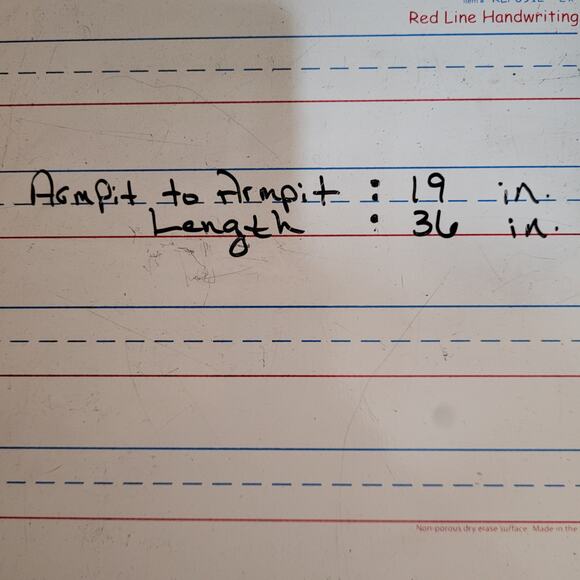 Red Line Handwriting
Armpit to Armpit : 19 in.
Length : 36 in.
Non-porous dry erase surface. Made in the